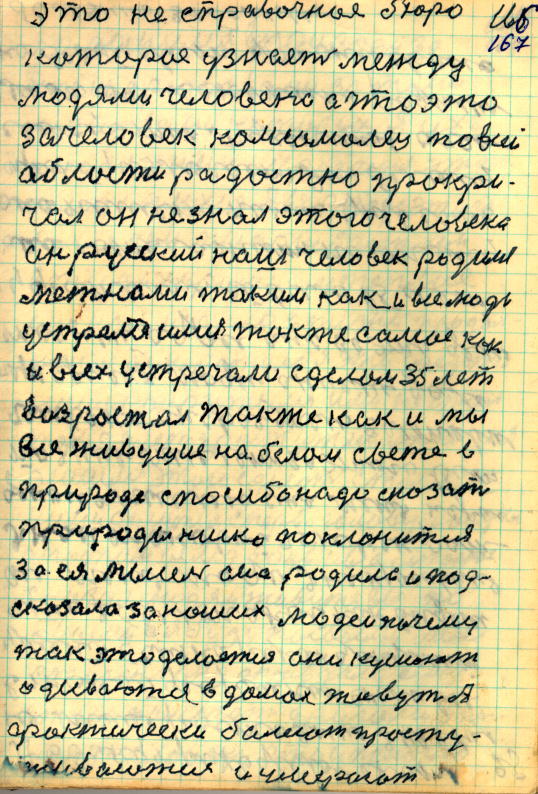 это не справочная бюро
167
которае узнает между
людями человека а что это
за человек комсомолец по всей
области радостно прокри-
чал он не знал этого человека
он русский наш человек родил
меж нами таким как и все люди
устрелте или так же самое как
и всех устречали сделом 35 лет
возростал так же как и мы
все живущие на белом свете в
природе спосибо надо сказать
природы ниско поклонится
за ея она родила и под-
сказала за наших людей почему
так это делается они кушают
одеваются в домах живут А
фактически балеют просту-
живаются и умерают